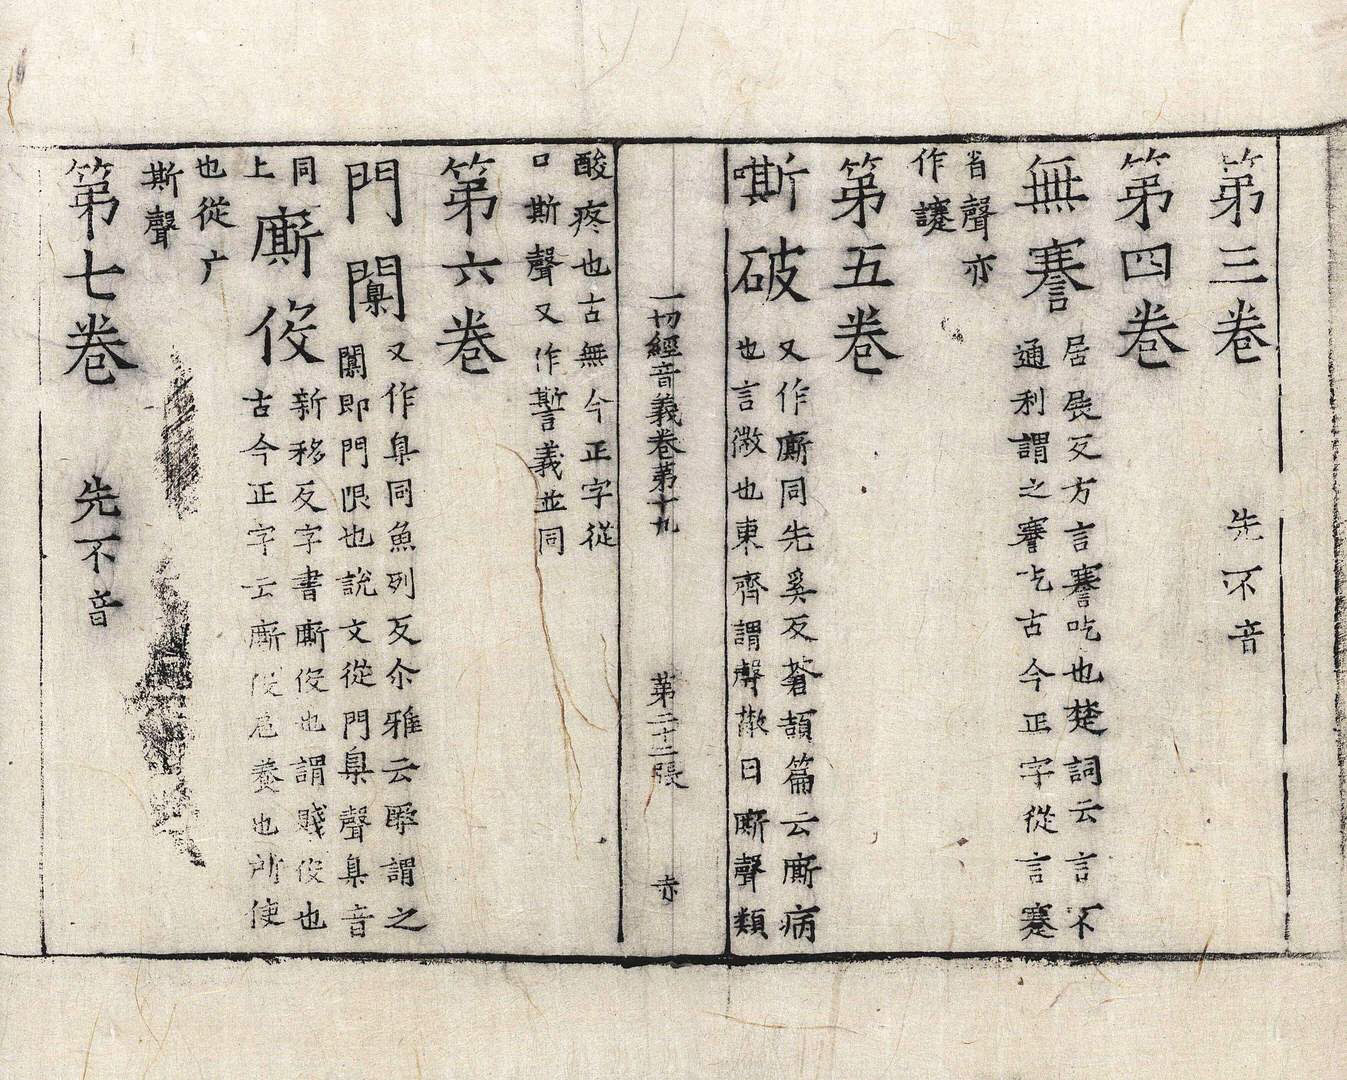 第三卷 先不音
第四卷
無謇
居展反方言謇吃也楚詞云言不
通利謂之謇吃古今正字從言蹇
省聲亦
作讓
第五卷
嘶破
又作廝同先奚反蒼頡篇云廝病
也言微也東齊謂聲散曰廝聲類
一切經音義卷第十九 第二十二張 赤
酸疼也古無今正字從
口斯聲又作誓義並同
第六卷
門闑
又作臬同魚列反尒雅云橛謂之
闑即門限也說文從門臬聲臬音
同
上
廝伇
新移反字書廝伇也謂賤伇也
古今正字云廝伇卮養也所使
也從广
斯聲
第七卷 先不音